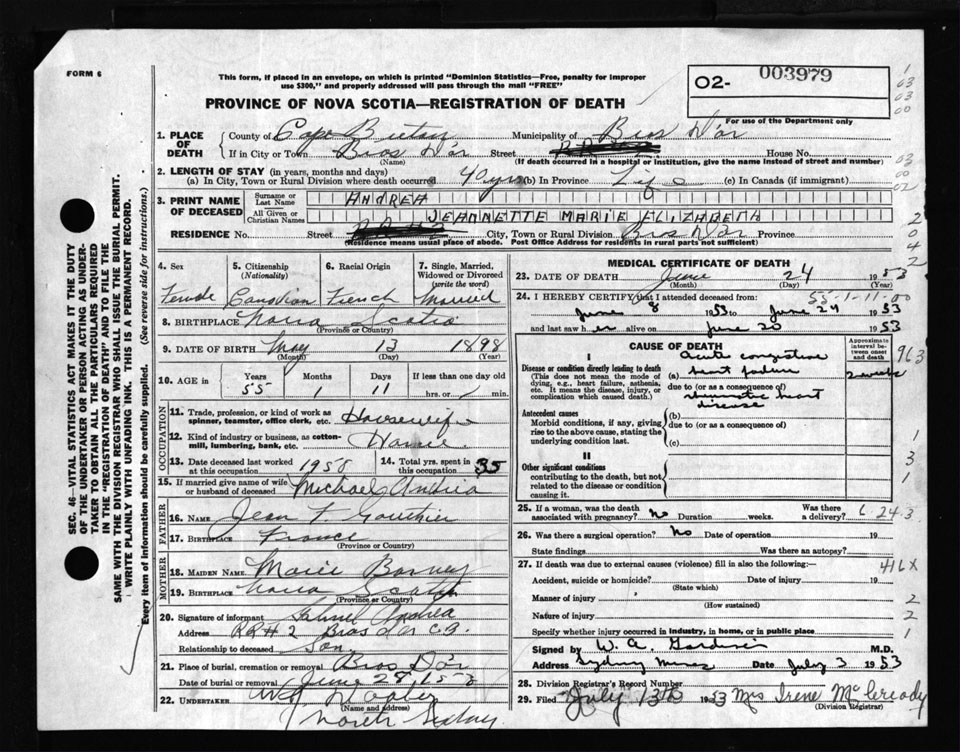 FORM 6
This form, if placed in an envelope, on which is printed "Dominion Statistics—Free, penalty for improper
use $300," and properly addressed will pass through the mail "FREE"
02- 003979
PROVINCE OF NOVA SCOTIA—REGISTRATION OF DEATH
For use of the Department only
1. PLACE OF DEATH
County of Cape Breton Municipality of Bras D'or
If in City or Town Bras D'or Street House No.
(Name) (If death occurred in a hospital or institution, give the name instead of street and number)
2. LENGTH OF STAY (in years, months and days)
(a) In City, Town or Rural Division where death occurred 40 yrs (b) In Province Life (c) In Canada (if immigrant)
3. PRINT NAME OF DECEASED
Surname or Last Name ANDREA
All Given or Christian Names JEANNETTE MARIE ELIZABETH
RESIDENCE No. Street City, Town or Rural Division Bras D'or Province
(Residence means usual place of abode. Post Office Address for residents in rural parts not sufficient)
4. Sex 5. Citizenship (Nationality) 6. Racial Origin 7. Single, Married, Widowed or Divorced (write the word)
Female Canadian French Married
8. BIRTHPLACE Nova Scotia
(Province or Country)
9. DATE OF BIRTH May 13 1898
(Month) (Day) (Year)
10. AGE Years Months Days If less than one day old
55 1 11 hrs. or min.
OCCUPATION
11. Trade, profession, or kind of work as spinner, teamster, office clerk, etc. Housewife
12. Kind of industry or business, as cotton-mill, lumbering, bank, etc. Home
13. Date deceased last worked at this occupation 1950
14. Total yrs. spent in this occupation 35
15. If married give name of wife or husband of deceased Michael Andrea
FATHER
16. NAME Jean F Gouthier
17. BIRTHPLACE France
(Province or Country)
MOTHER
18. MAIDEN NAME Marie
19. BIRTHPLACE Nova Scotia
(Province or Country)
20. Signature of informant Gabriel Andrea
Address RR# 2 Bras d'or C.B.
Relationship to deceased Son
21. Place of burial, cremation or removal Bras D'or
Date of burial or removal June
22. UNDERTAKER
(Name and address)
North Sydney
MEDICAL CERTIFICATE OF DEATH
23. DATE OF DEATH June 24 1953
(Month) (Day)
55-1-11-00
24. I HEREBY CERTIFY that I attended deceased from:
June 8 1953 to June 24 1953
and last saw her alive on June 20 1953
CAUSE OF DEATH
Approximate interval between onset and death
963
I
Disease or condition directly leading to death (a) Acute congestive heart failure 2 weeks
(This does not mean the mode of dying, e.g., heart failure, asthenia, etc. It means the disease, injury, or complication which caused death.)
due to (or as a consequence of)
rheumatic heart disease
Antecedent causes
Morbid conditions, if any, giving rise to the above cause, stating the underlying condition last.
(b)
due to (or as a consequence of)
(c)
II
Other significant conditions contributing to the death, but not related to the disease or condition causing it.
25. If a woman, was the death associated with pregnancy? No Duration weeks. Was there a delivery? 6-24-3
26. Was there a surgical operation? No Date of operation 19
State findings Was there an autopsy?
27. If death was due to external causes (violence) fill in also the following: 416X
Accident, suicide or homicide? Date of injury 19
(State which)
Manner of injury
(How sustained)
Nature of injury
Specify whether injury occurred in industry, in home, or in public place
Signed by W. A. M.D.
Address Sydney Mines Date July 3 1953
28. Division Registrar's Record Number
29. Filed July 13th 1953 Mrs Irene McCready
(Division Registrar)
SEC. 46—VITAL STATISTICS ACT MAKES IT THE DUTY
OF THE UNDERTAKER OR PERSON ACTING AS UNDER-
TAKER TO OBTAIN ALL THE PARTICULARS REQUIRED
IN THE "REGISTRATION OF DEATH" AND TO FILE THE
SAME WITH THE DIVISION REGISTRAR WHO SHALL ISSUE THE BURIAL PERMIT.
WRITE PLAINLY WITH UNFADING INK. THIS IS A PERMANENT RECORD.
Every item of information should be carefully supplied. (See reverse side for instructions.)